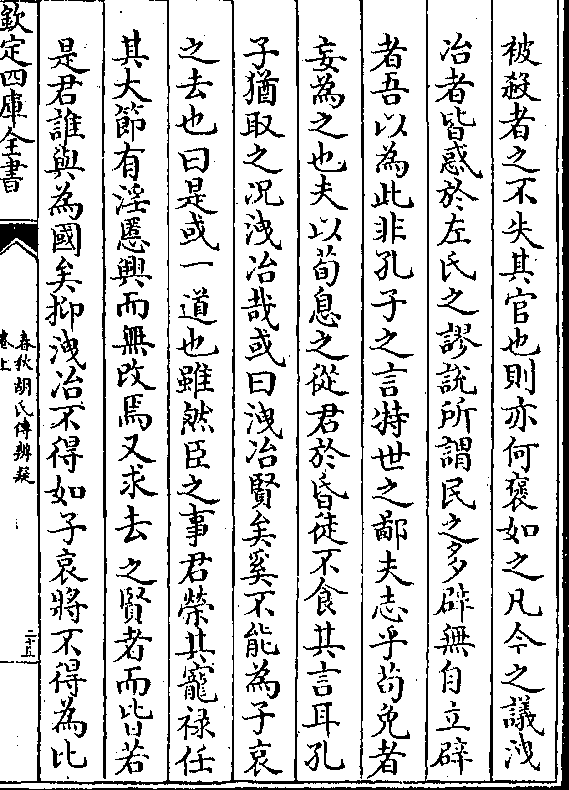 被殺者之不失其官也則亦何褒如之凡今之議洩
冶者皆惑於左氏之謬說所謂民之多辟無自立辟
者吾以為此非孔子之言特世之鄙夫志乎茍免者
妄為之也夫以荀息之從君於昏徒不食其言耳孔
子猶取之况洩冶哉或曰洩冶賢矣奚不能為子哀
之去也曰是或一道也雖然臣之事君榮其寵禄任
其大節有淫慝興而無改焉又求去之賢者而皆若
是君誰與為國矣抑洩冶不得如子哀將不得為比
欽定四庫全書
春秋胡氏傳辨疑
卷上
二五